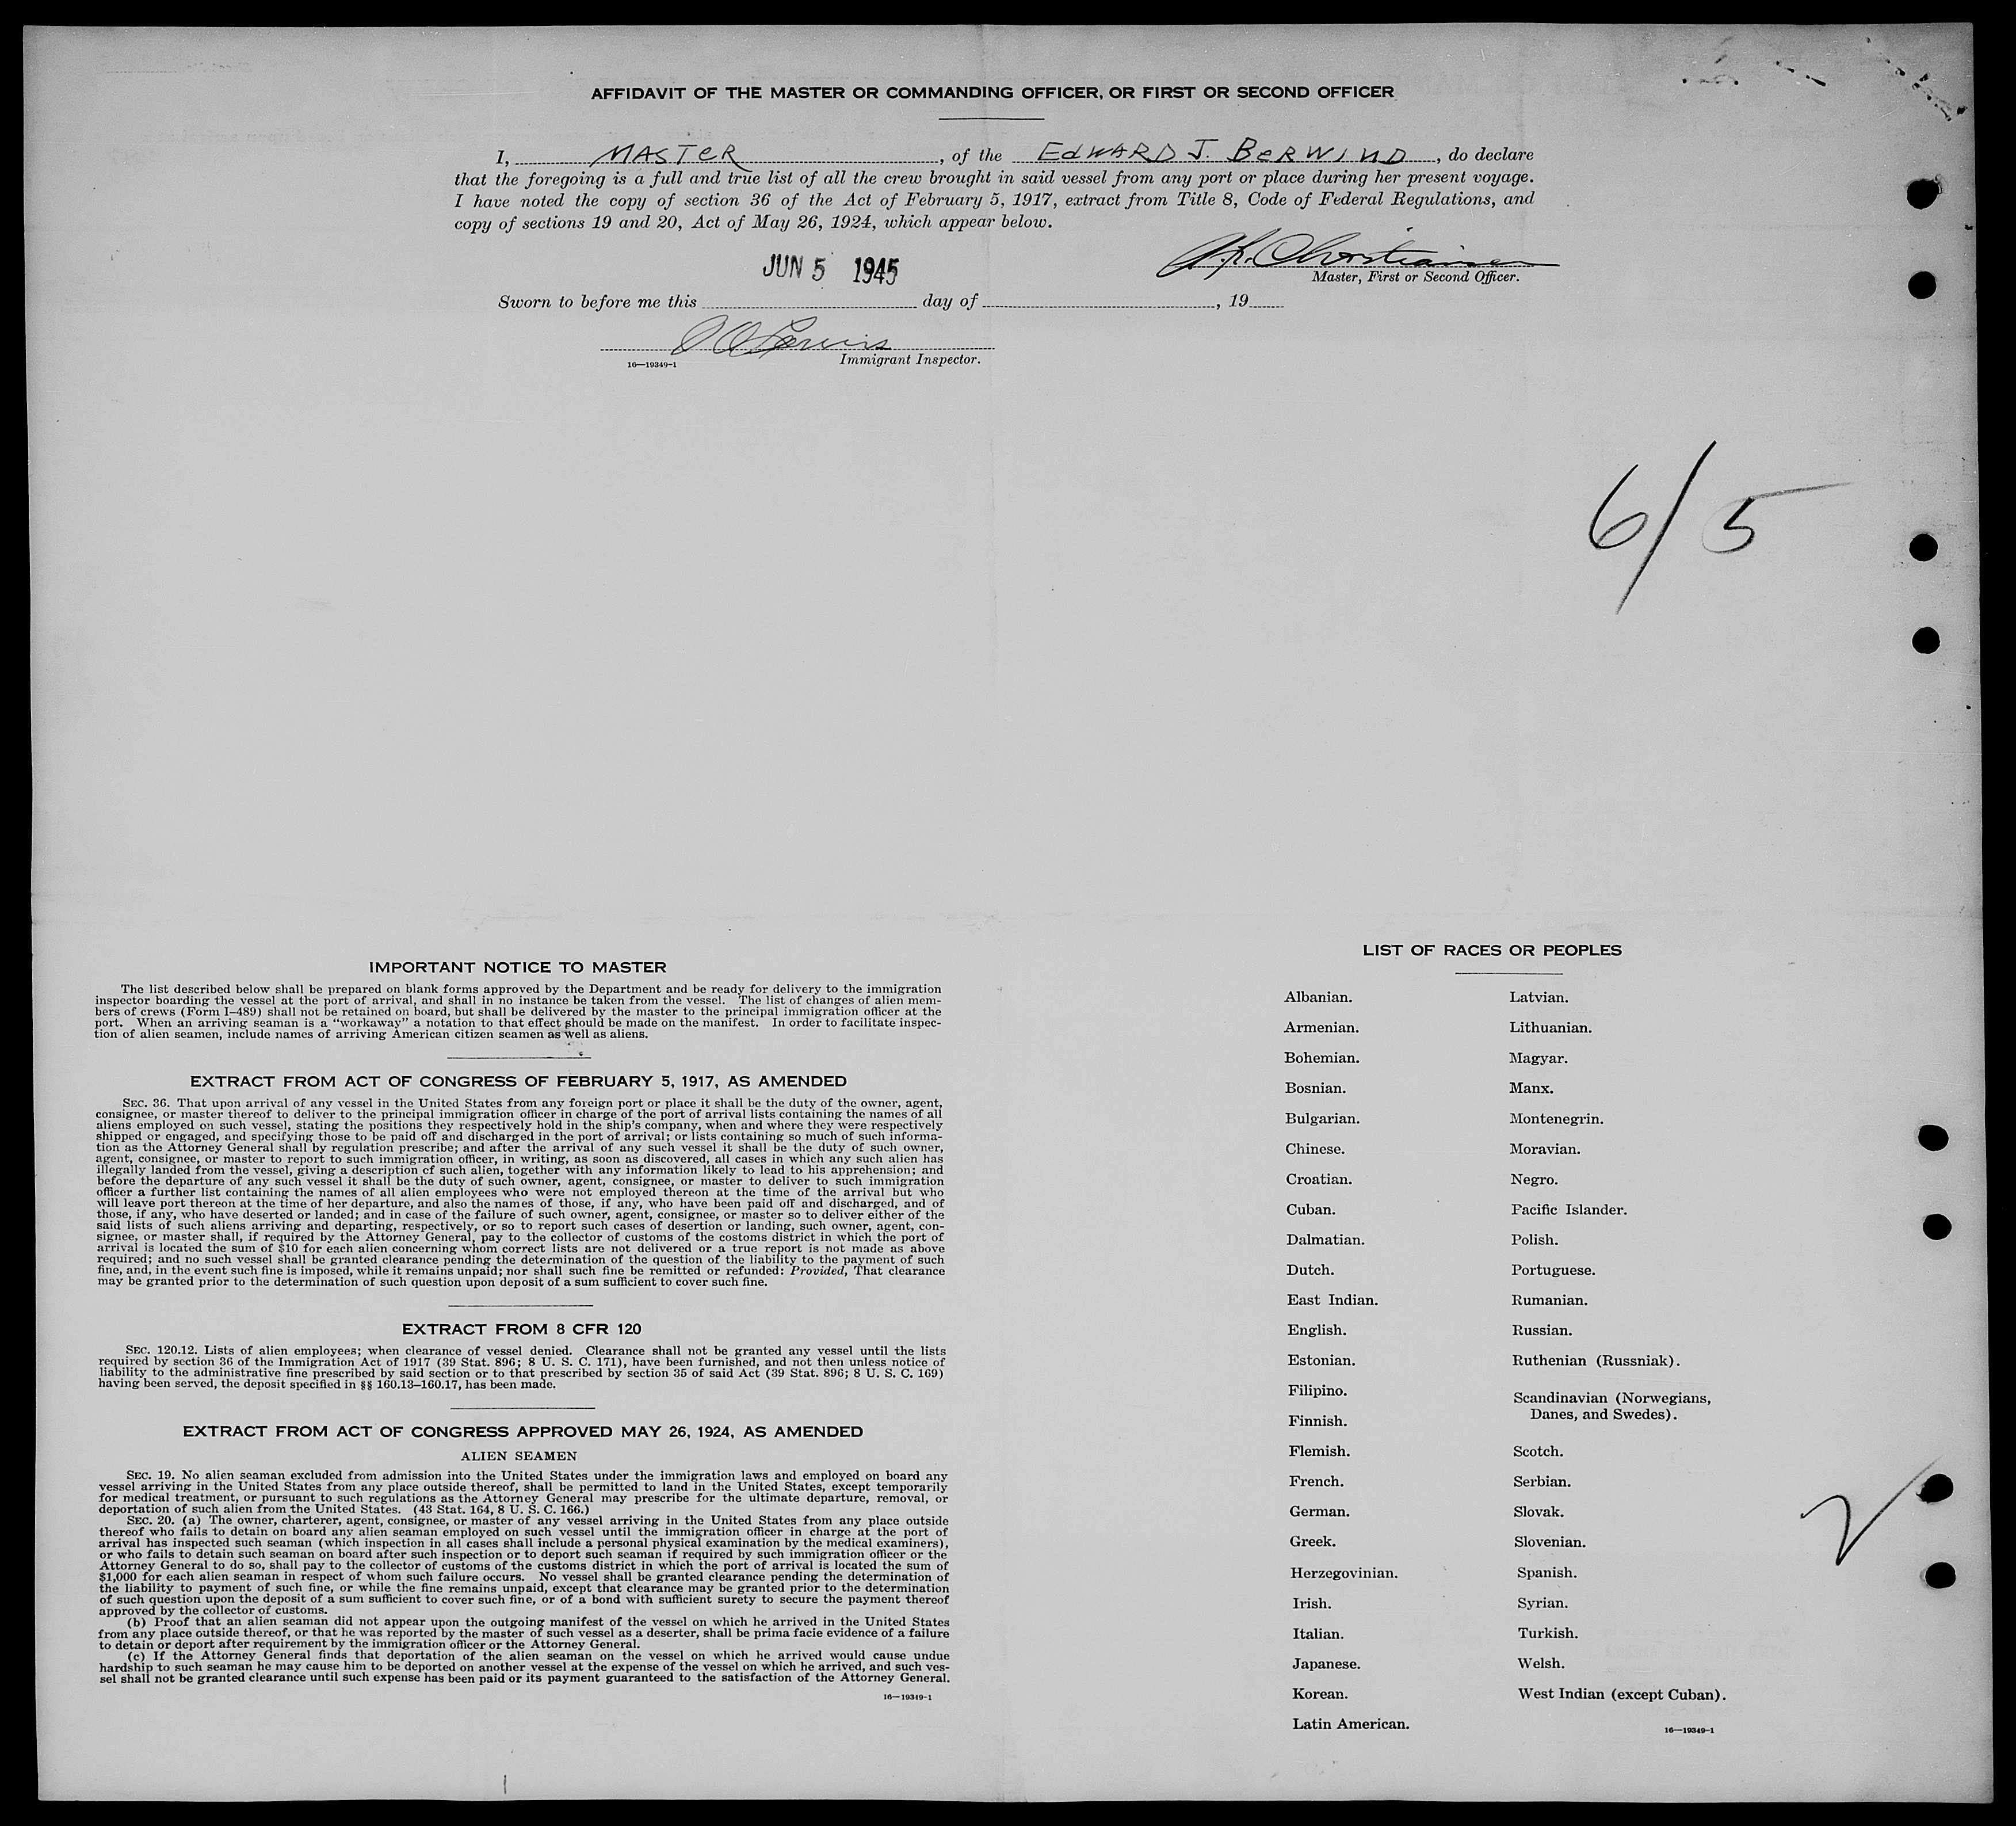 AFFIDAVIT OF THE MASTER OR COMMANDING OFFICER, OR FIRST OR SECOND OFFICER
I, MASTER, of the EDWARD J. BERWIND, do declare
that the foregoing is a full and true list of all the crew brought in said vessel from any port or place during her present voyage.
I have noted the copy of section 36 of the Act of February 5, 1917, extract from Title 8, Code of Federal Regulations, and
copy of sections 19 and 20, Act of May 26, 1924, which appear below.
Christiansen
Master, First or Second Officer.
JUN 5 1945
Sworn to before me this day of , 19
Immigrant Inspector.
16—19349-1
6/5
IMPORTANT NOTICE TO MASTER
The list described below shall be prepared on blank forms approved by the Department and be ready for delivery to the immigration
inspector boarding the vessel at the port of arrival, and shall in no instance be taken from the vessel. The list of changes of alien mem-
bers of crews (Form I-489) shall not be retained on board, but shall be delivered by the master to the principal immigration officer at the
port. When an arriving seaman is a "workaway" a notation to that effect should be made on the manifest. In order to facilitate inspec-
tion of alien seamen, include names of arriving American citizen seamen as well as aliens.
EXTRACT FROM ACT OF CONGRESS OF FEBRUARY 5, 1917, AS AMENDED
SEC. 36. That upon arrival of any vessel in the United States from any foreign port or place it shall be the duty of the owner, agent,
consignee, or master thereof to deliver to the principal immigration officer in charge of the port of arrival lists containing the names of all
aliens employed on such vessel, stating the positions they respectively hold in the ship's company, when and where they were respectively
shipped or engaged, and specifying those to be paid off and discharged in the port of arrival; or lists containing so much of such informa-
tion as the Attorney General shall by regulation prescribe; and after the arrival of any such vessel it shall be the duty of such owner,
agent, consignee, or master to report to such immigration officer, in writing, as soon as discovered, all cases in which any such alien has
illegally landed from the vessel, giving a description of such alien, together with any information likely to lead to his apprehension; and
before the departure of any such vessel it shall be the duty of such owner, agent, consignee, or master to deliver to such immigration
officer a further list containing the names of all alien employees who were not employed thereon at the time of the arrival but who
will leave port thereon at the time of her departure, and also the names of those, if any, who have been paid off and discharged, and of
those, if any, who have deserted or landed; and in case of the failure of such owner, agent, consignee, or master so to deliver either of the
said lists of such aliens arriving and departing, respectively, or so to report such cases of desertion or landing, such owner, agent, con-
signee, or master shall, if required by the Attorney General, pay to the collector of customs of the costoms district in which the port of
arrival is located the sum of $10 for each alien concerning whom correct lists are not delivered or a true report is not made as above
required; and no such vessel shall be granted clearance pending the determination of the question of the liability to the payment of such
fine, and, in the event such fine is imposed, while it remains unpaid; nor shall such fine be remitted or refunded: Provided, That clearance
may be granted prior to the determination of such question upon deposit of a sum sufficient to cover such fine.
EXTRACT FROM 8 CFR 120
SEC. 120.12. Lists of alien employees; when clearance of vessel denied. Clearance shall not be granted any vessel until the lists
required by section 36 of the Immigration Act of 1917 (39 Stat. 896; 8 U. S. C. 171), have been furnished, and not then unless notice of
liability to the administrative fine prescribed by said section or to that prescribed by section 35 of said Act (39 Stat. 896; 8 U. S. C. 169)
having been served, the deposit specified in §§ 160.13–160.17, has been made.
EXTRACT FROM ACT OF CONGRESS APPROVED MAY 26, 1924, AS AMENDED
ALIEN SEAMEN
SEC. 19. No alien seaman excluded from admission into the United States under the immigration laws and employed on board any
vessel arriving in the United States from any place outside thereof, shall be permitted to land in the United States, except temporarily
for medical treatment, or pursuant to such regulations as the Attorney General may prescribe for the ultimate departure, removal, or
deportation of such alien from the United States. (43 Stat. 164, 8 U. S. C. 166.)
SEC. 20. (a) The owner, charterer, agent, consignee, or master of any vessel arriving in the United States from any place outside
thereof who fails to detain on board any alien seaman employed on such vessel until the immigration officer in charge at the port of
arrival has inspected such seaman (which inspection in all cases shall include a personal physical examination by the medical examiners),
or who fails to detain such seaman on board after such inspection or to deport such seaman if required by such immigration officer or the
Attorney General to do so, shall pay to the collector of customs of the customs district in which the port of arrival is located the sum of
$1,000 for each alien seaman in respect of whom such failure occurs. No vessel shall be granted clearance pending the determination of
the liability to payment of such fine, or while the fine remains unpaid, except that clearance may be granted prior to the determination
of such question upon the deposit of a sum sufficient to cover such fine, or of a bond with sufficient surety to secure the payment thereof
approved by the collector of customs.
(b) Proof that an alien seaman did not appear upon the outgoing manifest of the vessel on which he arrived in the United States
from any place outside thereof, or that he was reported by the master of such vessel as a deserter, shall be prima facie evidence of a failure
to detain or deport after requirement by the immigration officer or the Attorney General.
(c) If the Attorney General finds that deportation of the alien seaman on the vessel on which he arrived would cause undue
hardship to such seaman he may cause him to be deported on another vessel at the expense of the vessel on which he arrived, and such ves-
sel shall not be granted clearance until such expense has been paid or its payment guaranteed to the satisfaction of the Attorney General.
16—19349-1
LIST OF RACES OR PEOPLES
Albanian.
Armenian.
Bohemian.
Bosnian.
Bulgarian.
Chinese.
Croatian.
Cuban.
Dalmatian.
Dutch.
East Indian.
English.
Estonian.
Filipino.
Finnish.
Flemish.
French.
German.
Greek.
Herzegovinian.
Irish.
Italian.
Japanese.
Korean.
Latin American.
Latvian.
Lithuanian.
Magyar.
Manx.
Montenegrin.
Moravian.
Negro.
Pacific Islander.
Polish.
Portuguese.
Rumanian.
Russian.
Ruthenian (Russniak).
Scandinavian (Norwegians,
Danes, and Swedes).
Scotch.
Serbian.
Slovak.
Slovenian.
Spanish.
Syrian.
Turkish.
Welsh.
West Indian (except Cuban).
16—19349-1